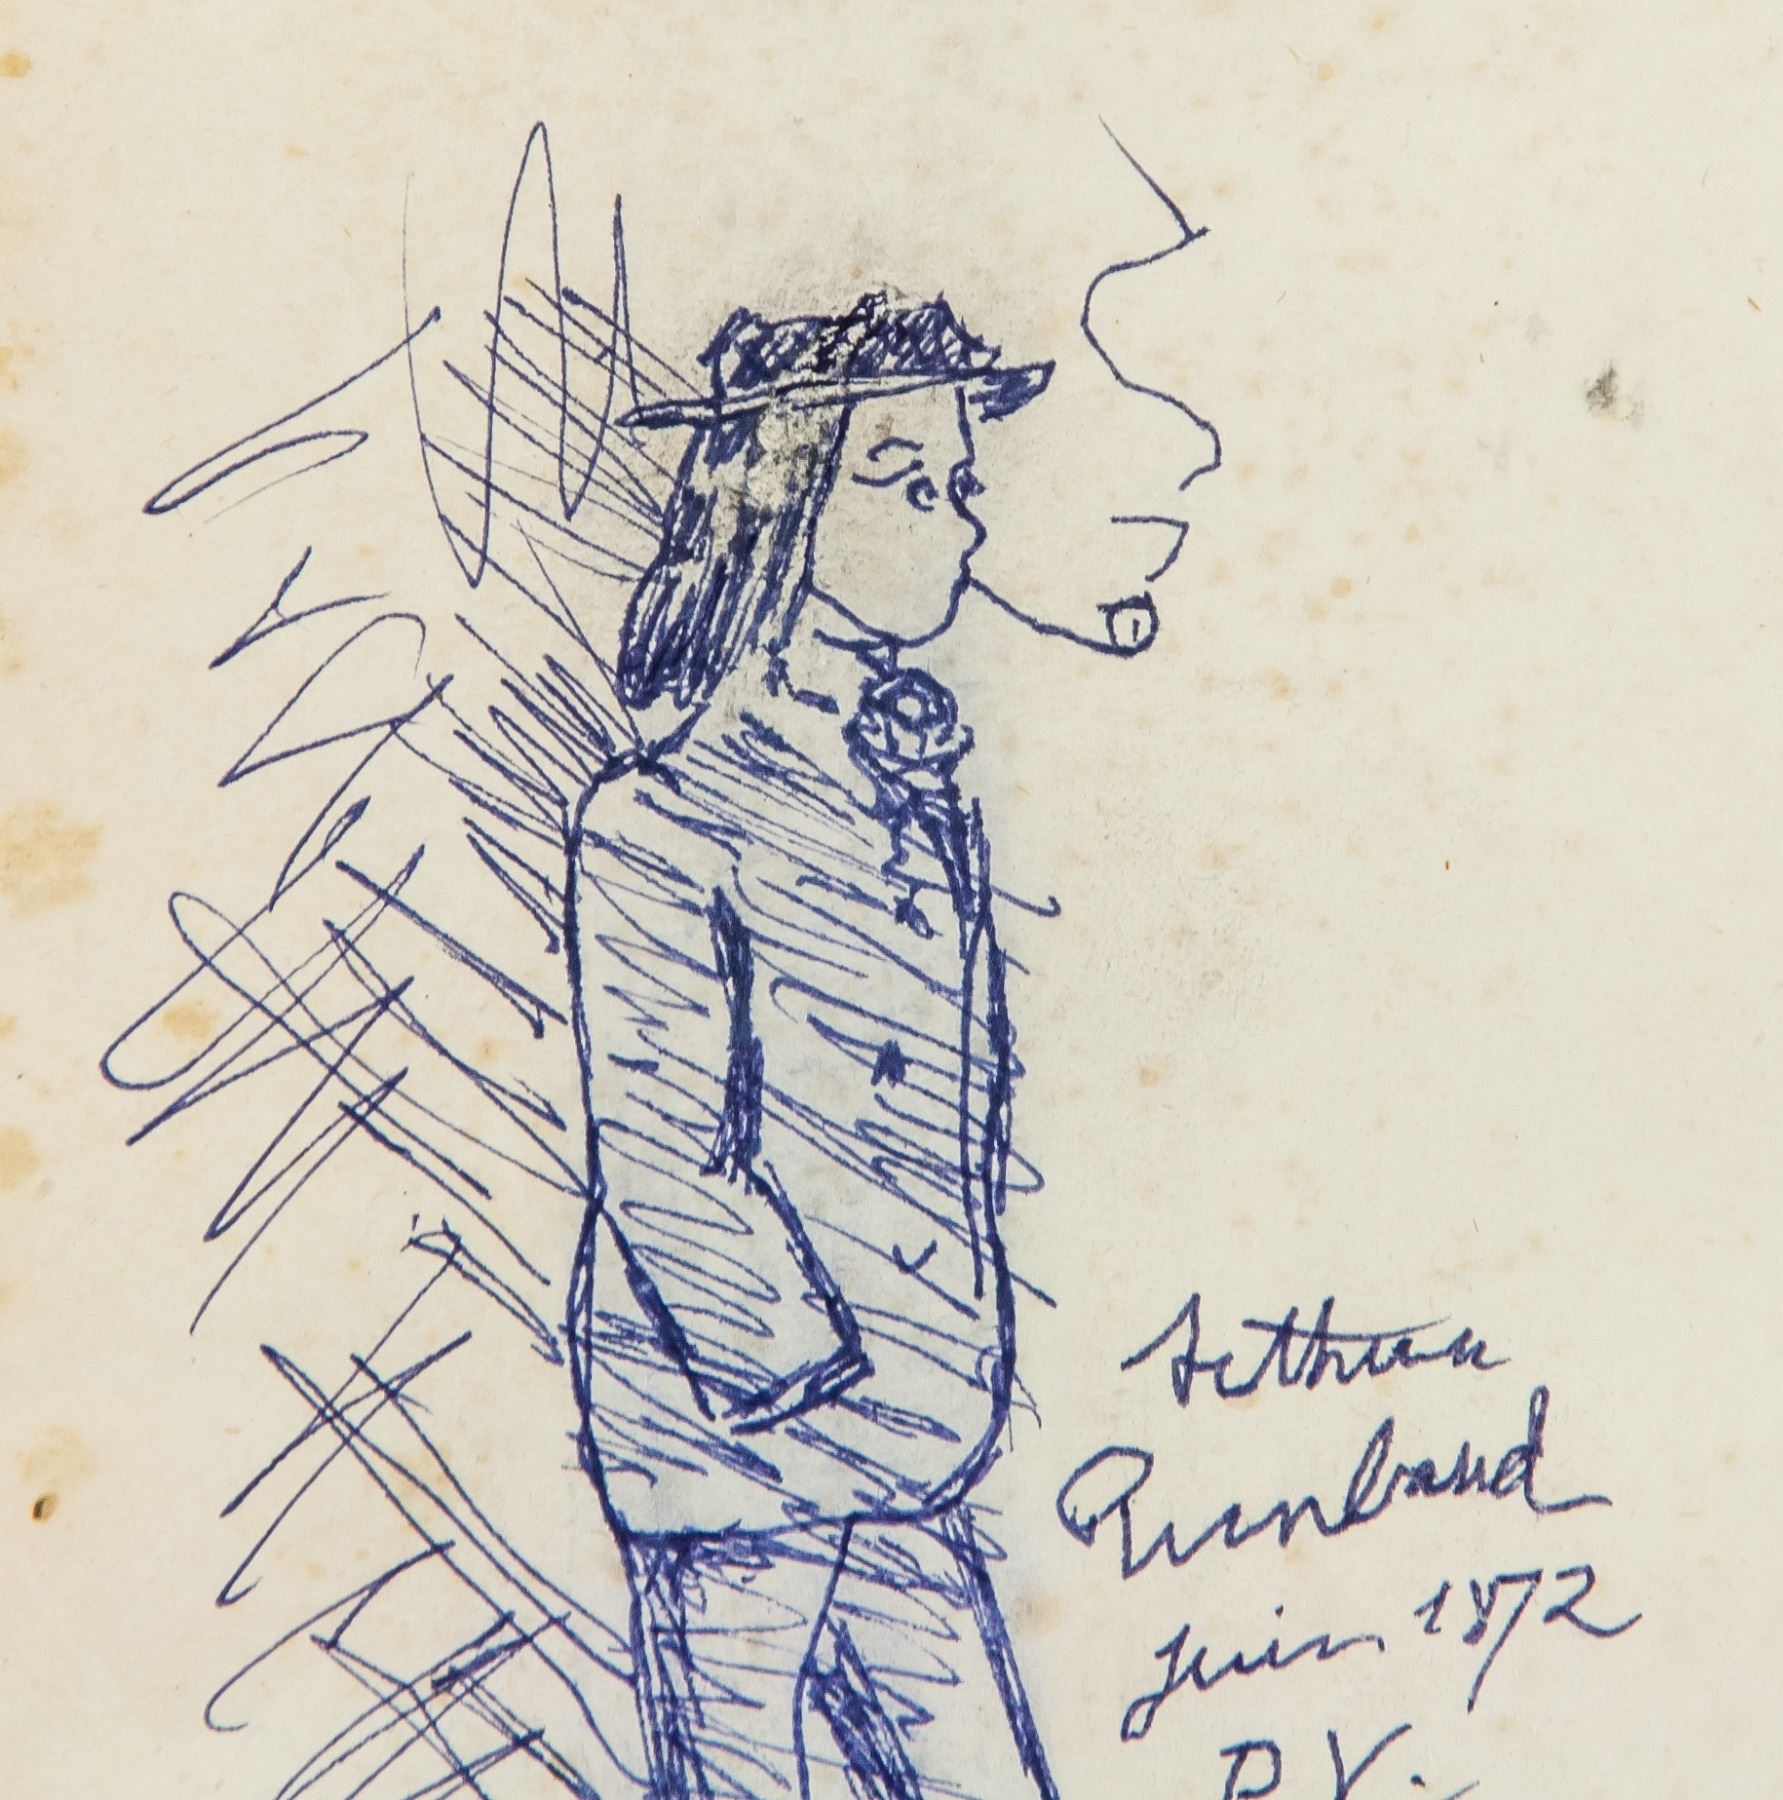 Arthur
Rimbaud
juin 1872
P. V.